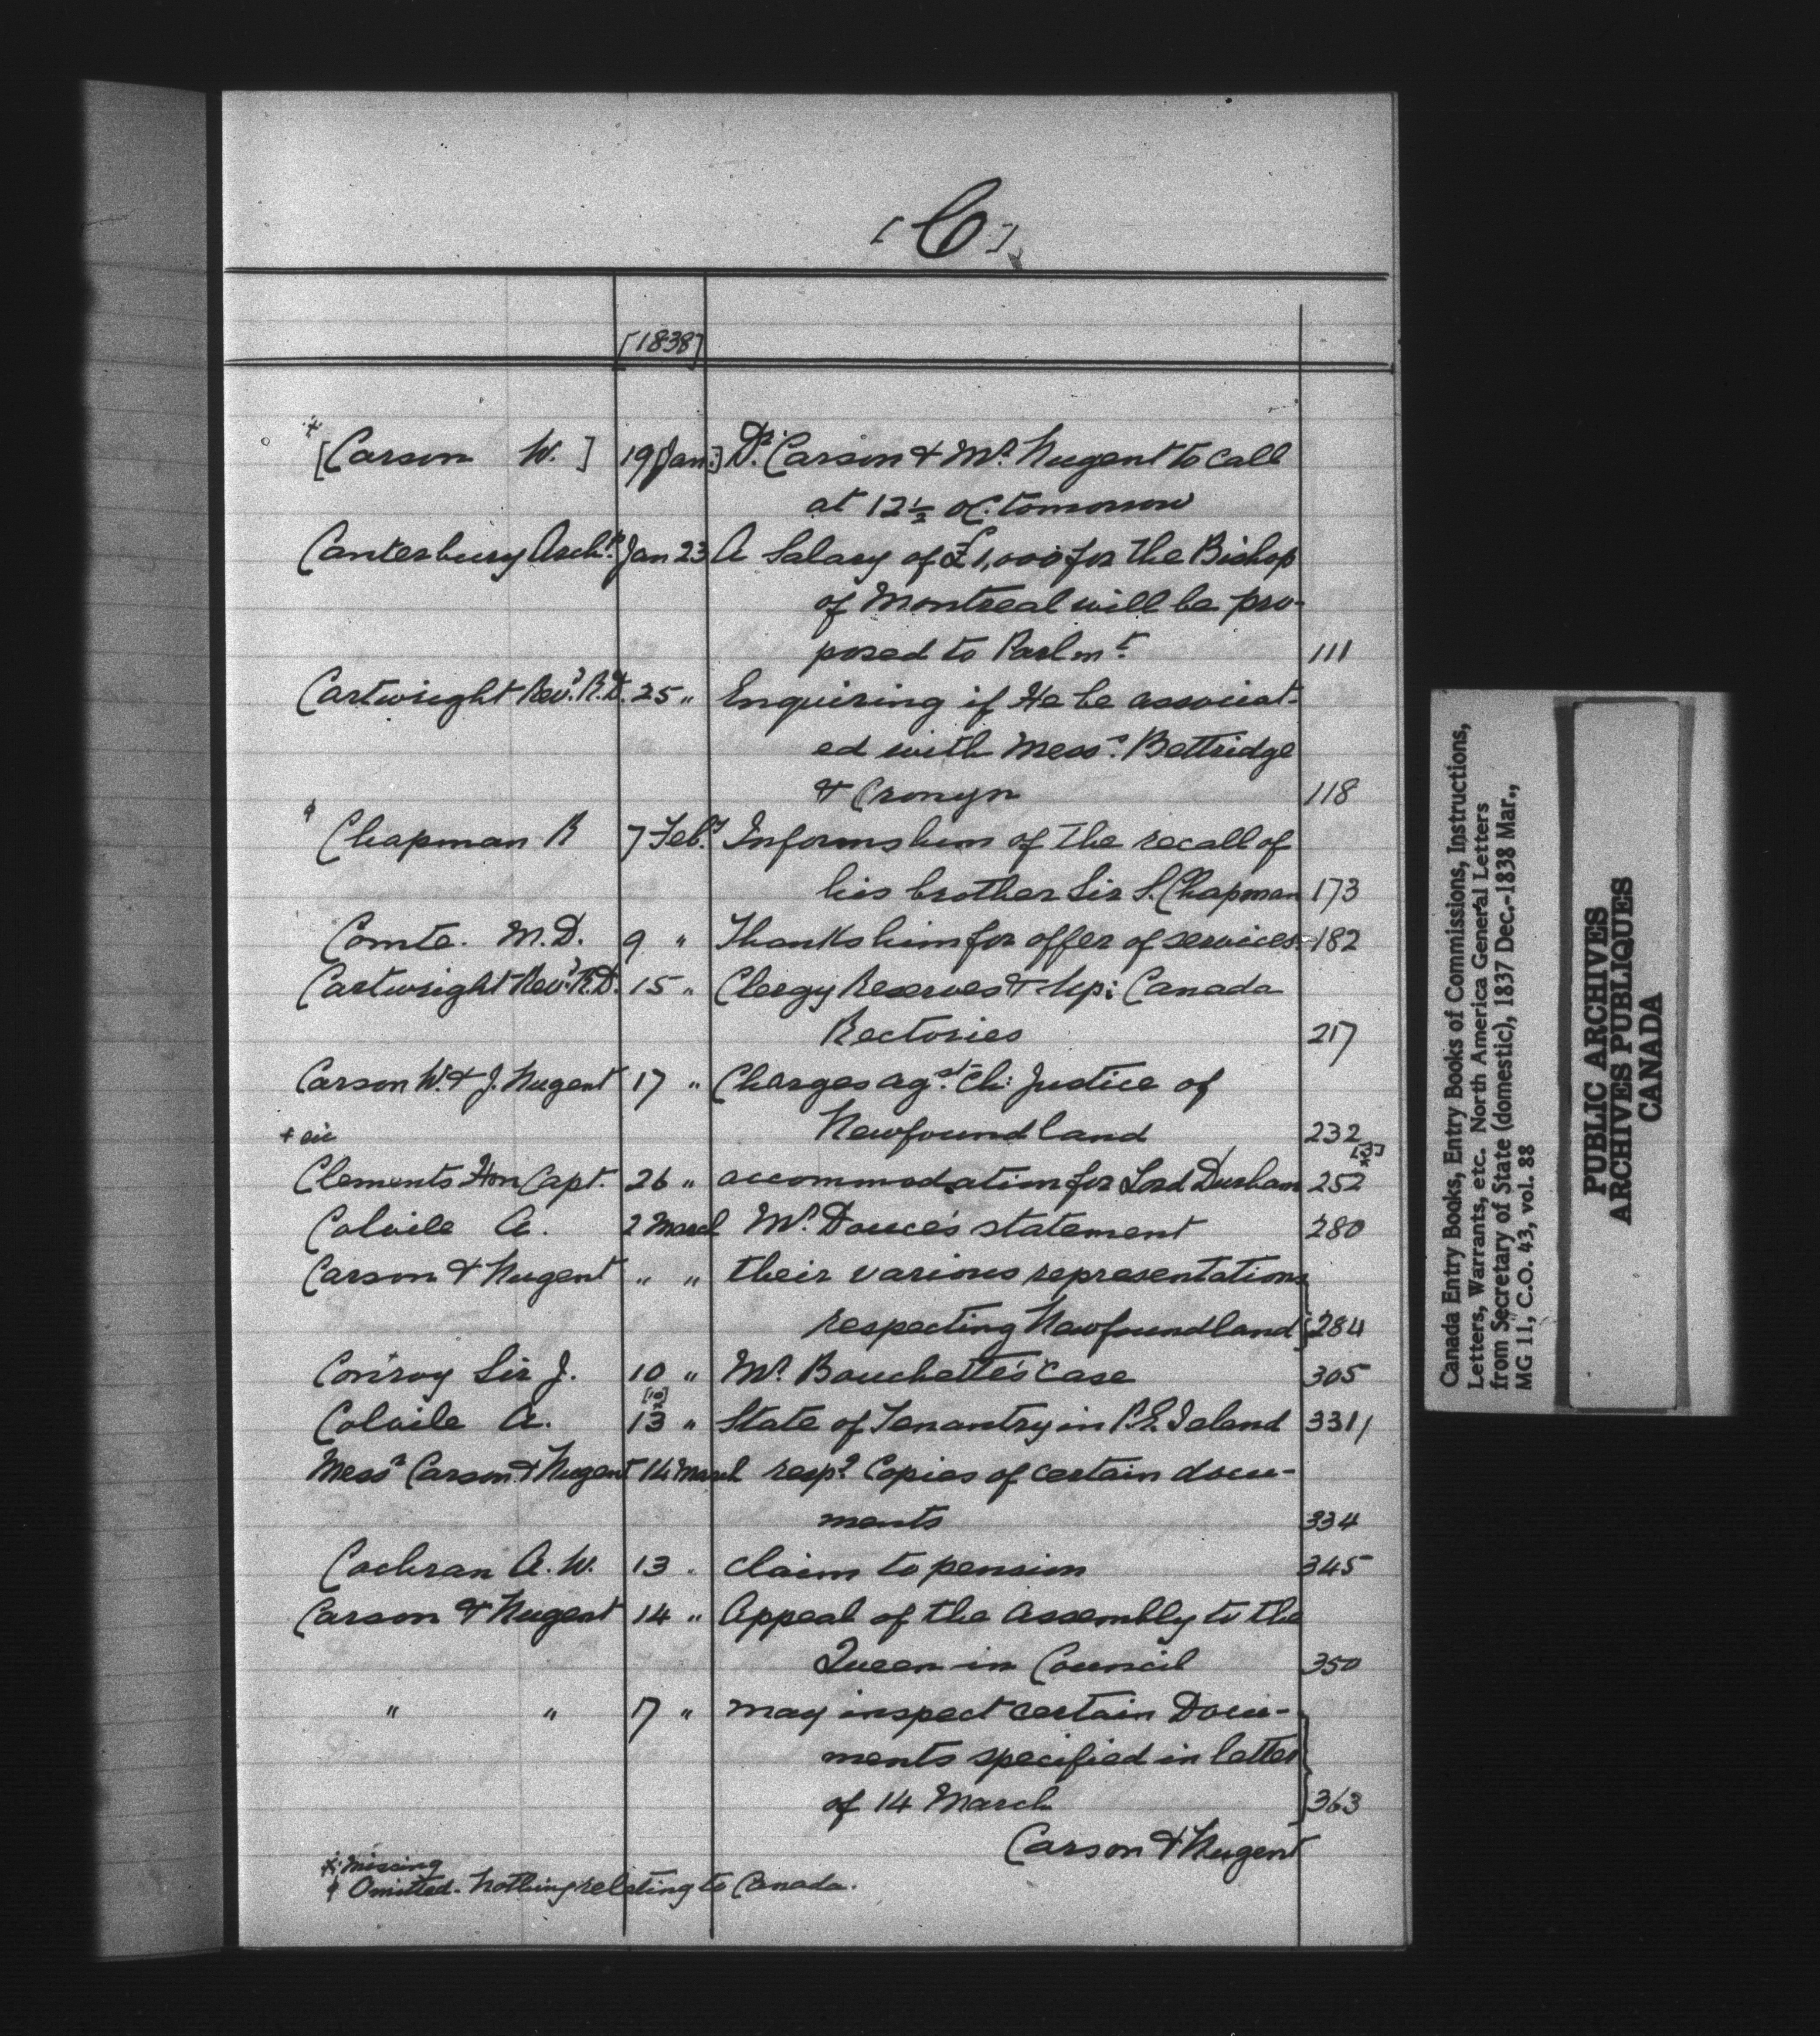 [C]
[1838]
* [Carson W.] 19 [Jan:] Dr. Carson & Mr. Nugent to call
at 12 1/2 oC. tomorrow
Canterbury Archbp. Jan 23 A Salary of £1,000 for the Bishop
of Montreal will be pro-
posed to Parlmt. 111
Cartwright Revd. R.D. 25 " Enquiring if He be associat-
ed with Messrs. Bettridge
& Cronyn 118
φ Chapman R 7 Feby. Informs him of the recall of
his brother Sir S. Chapman 173
Comte. M.D. 9 " Thanks him for offer of services. 182
Cartwright Revd. R.D. 15 " Clergy Reserves & Up: Canada
Rectories 217
Carson W. & J. Nugent 17 " Charges agst. Ch: Justice of
Newfoundland 232
+ sic
[3]
Clements Hon Capt. 26 " accommodation for Lord Durham 252
Colvile A. 2 March Mr. Douce's statement 280
Carson & Nugent " " their various representations
respecting Newfoundland 284
Conroy Sir J. 10 " Mr. Bouchette's case 305
[10]
Colvile A. 13 " State of Tenantry in P.E. Island 331
Messrs Carson & Nugent 14 March respg. Copies of certain docu-
ments 334
Cochran A.W. 13 " claim to pension 345
Carson & Nugent 14 " Appeal of the Assembly to the
Queen in Council 350
" " 17 " may inspect certain Docu-
ments specified in letter
of 14 March 363
Carson & Nugent
* missing
φ Omitted. Nothing relating to Canada.
Canada Entry Books, Entry Books of Commissions, Instructions,
Letters, Warrants, etc. North America General Letters
from Secretary of State (domestic), 1837 Dec.-1838 Mar.,
MG 11, C.O. 43, vol. 88
PUBLIC ARCHIVES
ARCHIVES PUBLIQUES
CANADA